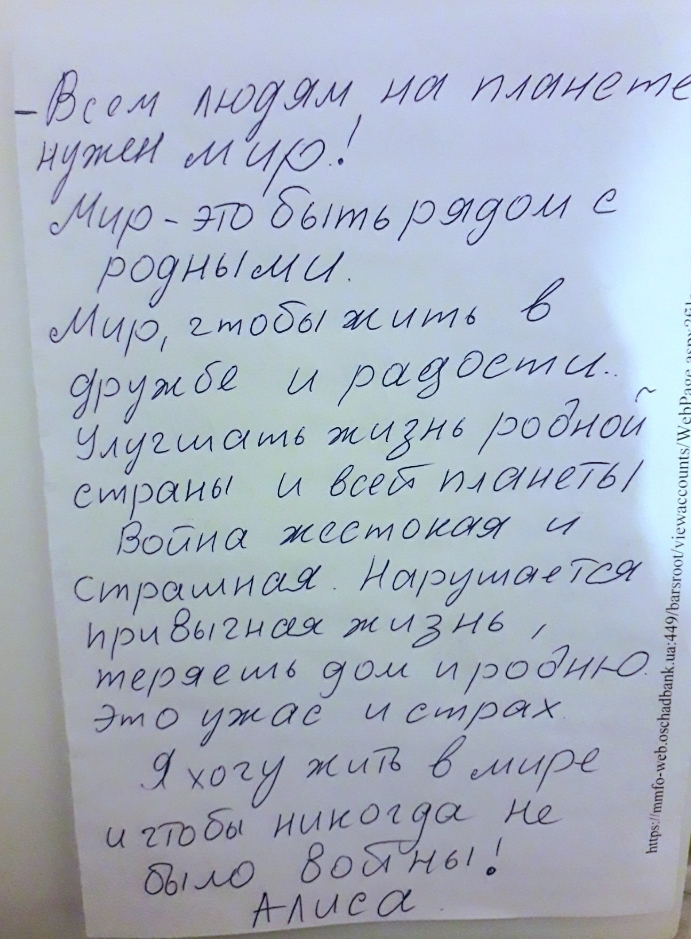 - Всем людям на планете
нужен мир!
Мир - это быть рядом с
родными.
Мир, чтобы жить в
дружбе и радости..
Улучшать жизнь родной
страны и всей планеты
Война жестокая и
страшная. Нарушается
привычная жизнь,
теряешь дом и родню.
Это ужас и страх.
Я хочу жить в мире
и чтобы никогда не
было войны!
Алиса.
https://mmfo-web.oschadbank.ua:449/barsroot/viewaccounts/WebPage.aspx?fil